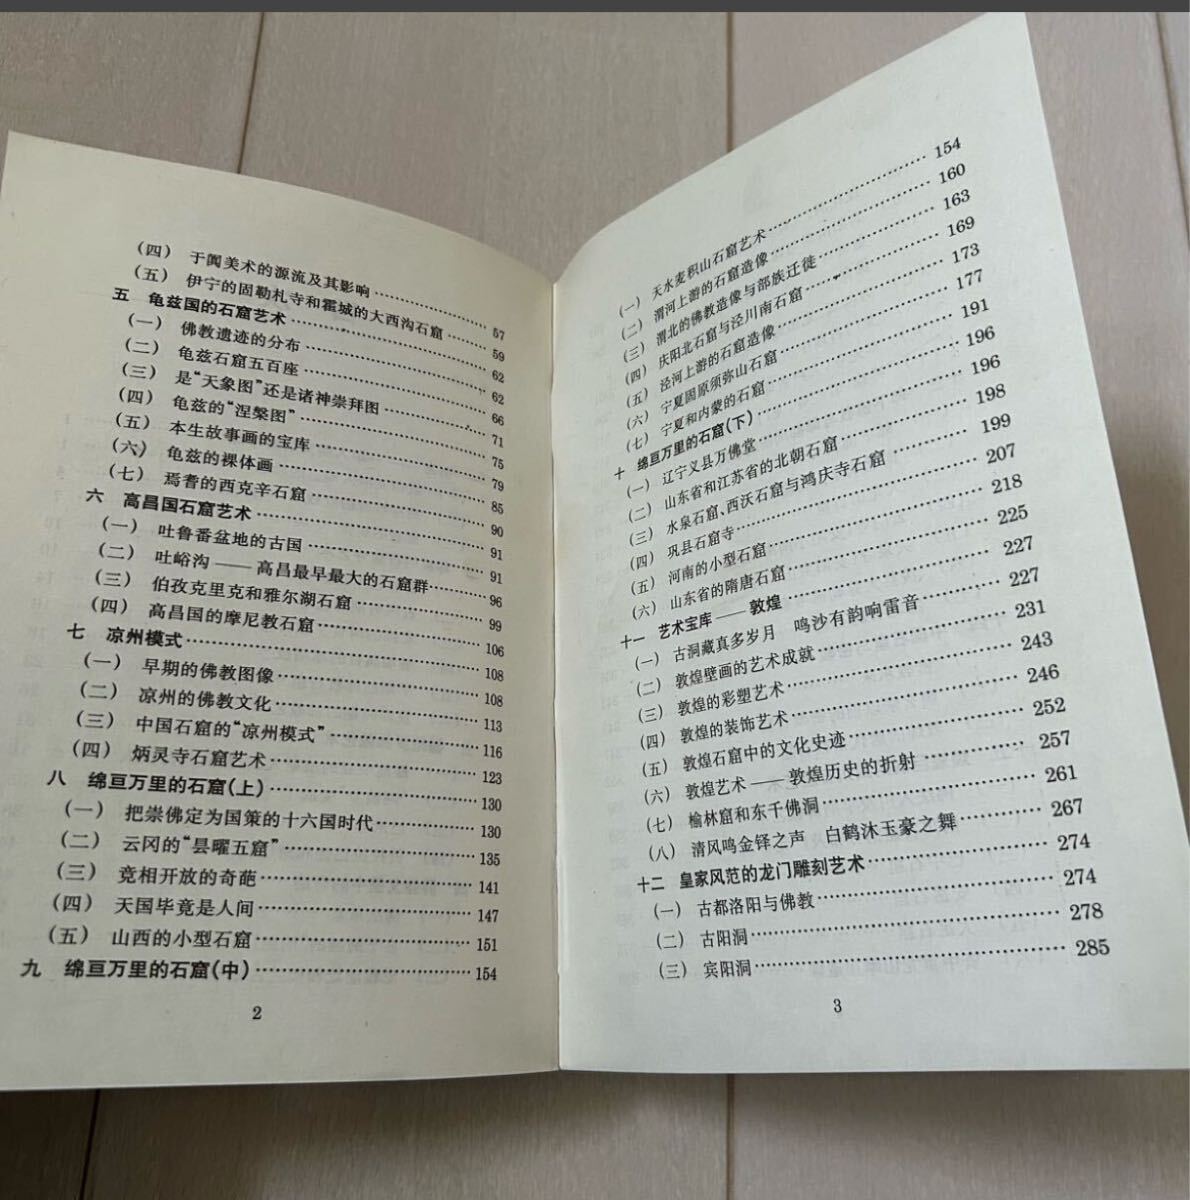 (四) 于阗美术的源流及其影响……57
(五) 伊宁的固勒札寺和霍城的大西沟石窟……59
五 龟兹国的石窟艺术……62
(一) 佛教遗迹的分布……62
(二) 龟兹石窟五百座……66
(三) 是“天象图”还是诸神崇拜图……71
(四) 龟兹的“涅槃图”……75
(五) 本生故事画的宝库……79
(六) 龟兹的裸体画……85
(七) 焉耆的西克辛石窟……90
六 高昌国石窟艺术……91
(一) 吐鲁番盆地的古国……91
(二) 吐峪沟——高昌最早最大的石窟群……96
(三) 伯孜克里克和雅尔湖石窟……99
(四) 高昌国的摩尼教石窟……106
七 凉州模式……108
(一) 早期的佛教图像……108
(二) 凉州的佛教文化……113
(三) 中国石窟的“凉州模式”……116
(四) 炳灵寺石窟艺术……123
八 绵亘万里的石窟(上)……130
(一) 把崇佛定为国策的十六国时代……130
(二) 云冈的“昙曜五窟”……135
(三) 竞相开放的奇葩……141
(四) 天国毕竟是人间……147
(五) 山西的小型石窟……151
九 绵亘万里的石窟(中)……154
2
(一) 天水麦积山石窟艺术……154
(二) 渭河上游的石窟造像……160
(三) 渭北的佛教造像与部族迁徙……163
(四) 庆阳北石窟与泾川南石窟……169
(五) 泾河上游的石窟造像……173
(六) 宁夏固原须弥山石窟……177
(七) 宁夏和内蒙的石窟……191
十 绵亘万里的石窟(下)……196
(一) 辽宁义县万佛堂……196
(二) 山东省和江苏省的北朝石窟……198
(三) 水泉石窟、西沃石窟与鸿庆寺石窟……199
(四) 巩县石窟寺……207
(五) 河南的小型石窟……218
(六) 山东省的隋唐石窟……225
十一 艺术宝库——敦煌……227
(一) 古洞藏真多岁月 鸣沙有韵响雷音……227
(二) 敦煌壁画的艺术成就……231
(三) 敦煌的彩塑艺术……243
(四) 敦煌的装饰艺术……246
(五) 敦煌石窟中的文化史迹……252
(六) 敦煌艺术——敦煌历史的折射……257
(七) 榆林窟和东千佛洞……261
(八) 清风鸣金铎之声 白鹤沐玉豪之舞……267
十二 皇家风范的龙门雕刻艺术……274
(一) 古都洛阳与佛教……274
(二) 古阳洞……278
(三) 宾阳洞……285
3